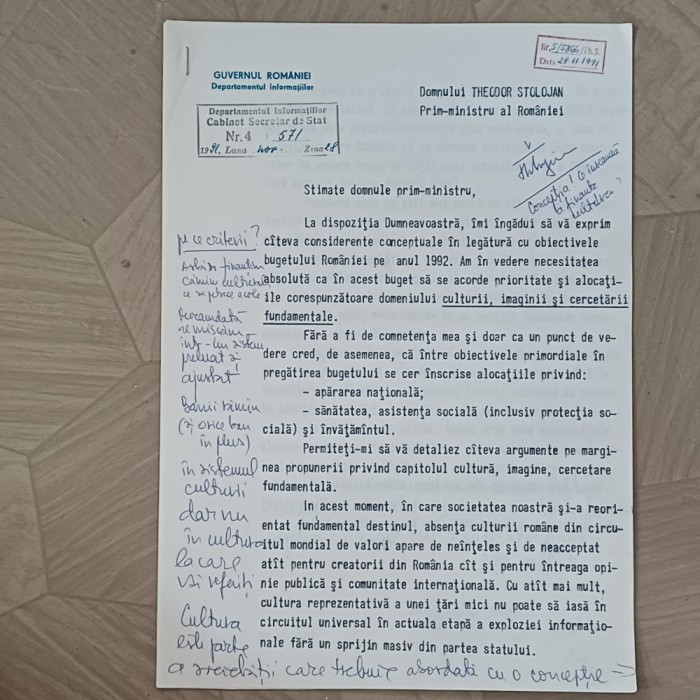 Nr. 5/5866/Th.S.
Data 28.11.1991
GUVERNUL ROMÂNIEI
Departamentul informațiilor
Departamentul Informațiilor
Cabinet Secretar de Stat
Nr. 4 571
1991. Luna nov. Ziua 28
Domnului THEODOR STOLOJAN
Prim-ministru al României
Concepția! Ce înseamnă
a finanța
cultura?
Stimate domnule prim-ministru,
La dispoziția Dumneavoastră, îmi îngădui să vă exprim
cîteva considerente conceptuale în legătură cu obiectivele
bugetului României pe anul 1992. Am în vedere necesitatea
absolută ca în acest buget să se acorde prioritate și alocați-
ile corespunzătoare domeniului culturii, imaginii și cercetării
fundamentale.
Fără a fi de competența mea și doar ca un punct de ve-
dere cred, de asemenea, că între obiectivele primordiale în
pregătirea bugetului se cer înscrise alocațiile privind:
- apărarea națională;
- sănătatea, asistența socială (inclusiv protecția so-
cială) și învățămîntul.
Permiteți-mi să vă detaliez cîteva argumente pe margi-
nea propunerii privind capitolul cultură, imagine, cercetare
fundamentală.
In acest moment, în care societatea noastră și-a reori-
entat fundamental destinul, absența culturii române din circu-
itul mondial de valori apare de neînțeles și de neacceptat
atît pentru creatorii din România cît și pentru întreaga opi-
nie publică și comunitate internațională. Cu atît mai mult,
cultura reprezentativă a unei țări mici nu poate să iasă în
circuitul universal în actuala etapă a exploziei informațio-
nale fără un sprijin masiv din partea statului.
pe ce criterii?
finanțăm
cămin culturale
ce se petrece acolo
Deocamdată
ne mișcăm
într-un sistem
preluat și
ajustat!
Banii rămîn
(și orice ban
în plus)
în sistemul
culturii
dar nu
în cultura
la care
vă referiți
Cultura
este parte
a societății care trebuie abordată cu o concepție =>